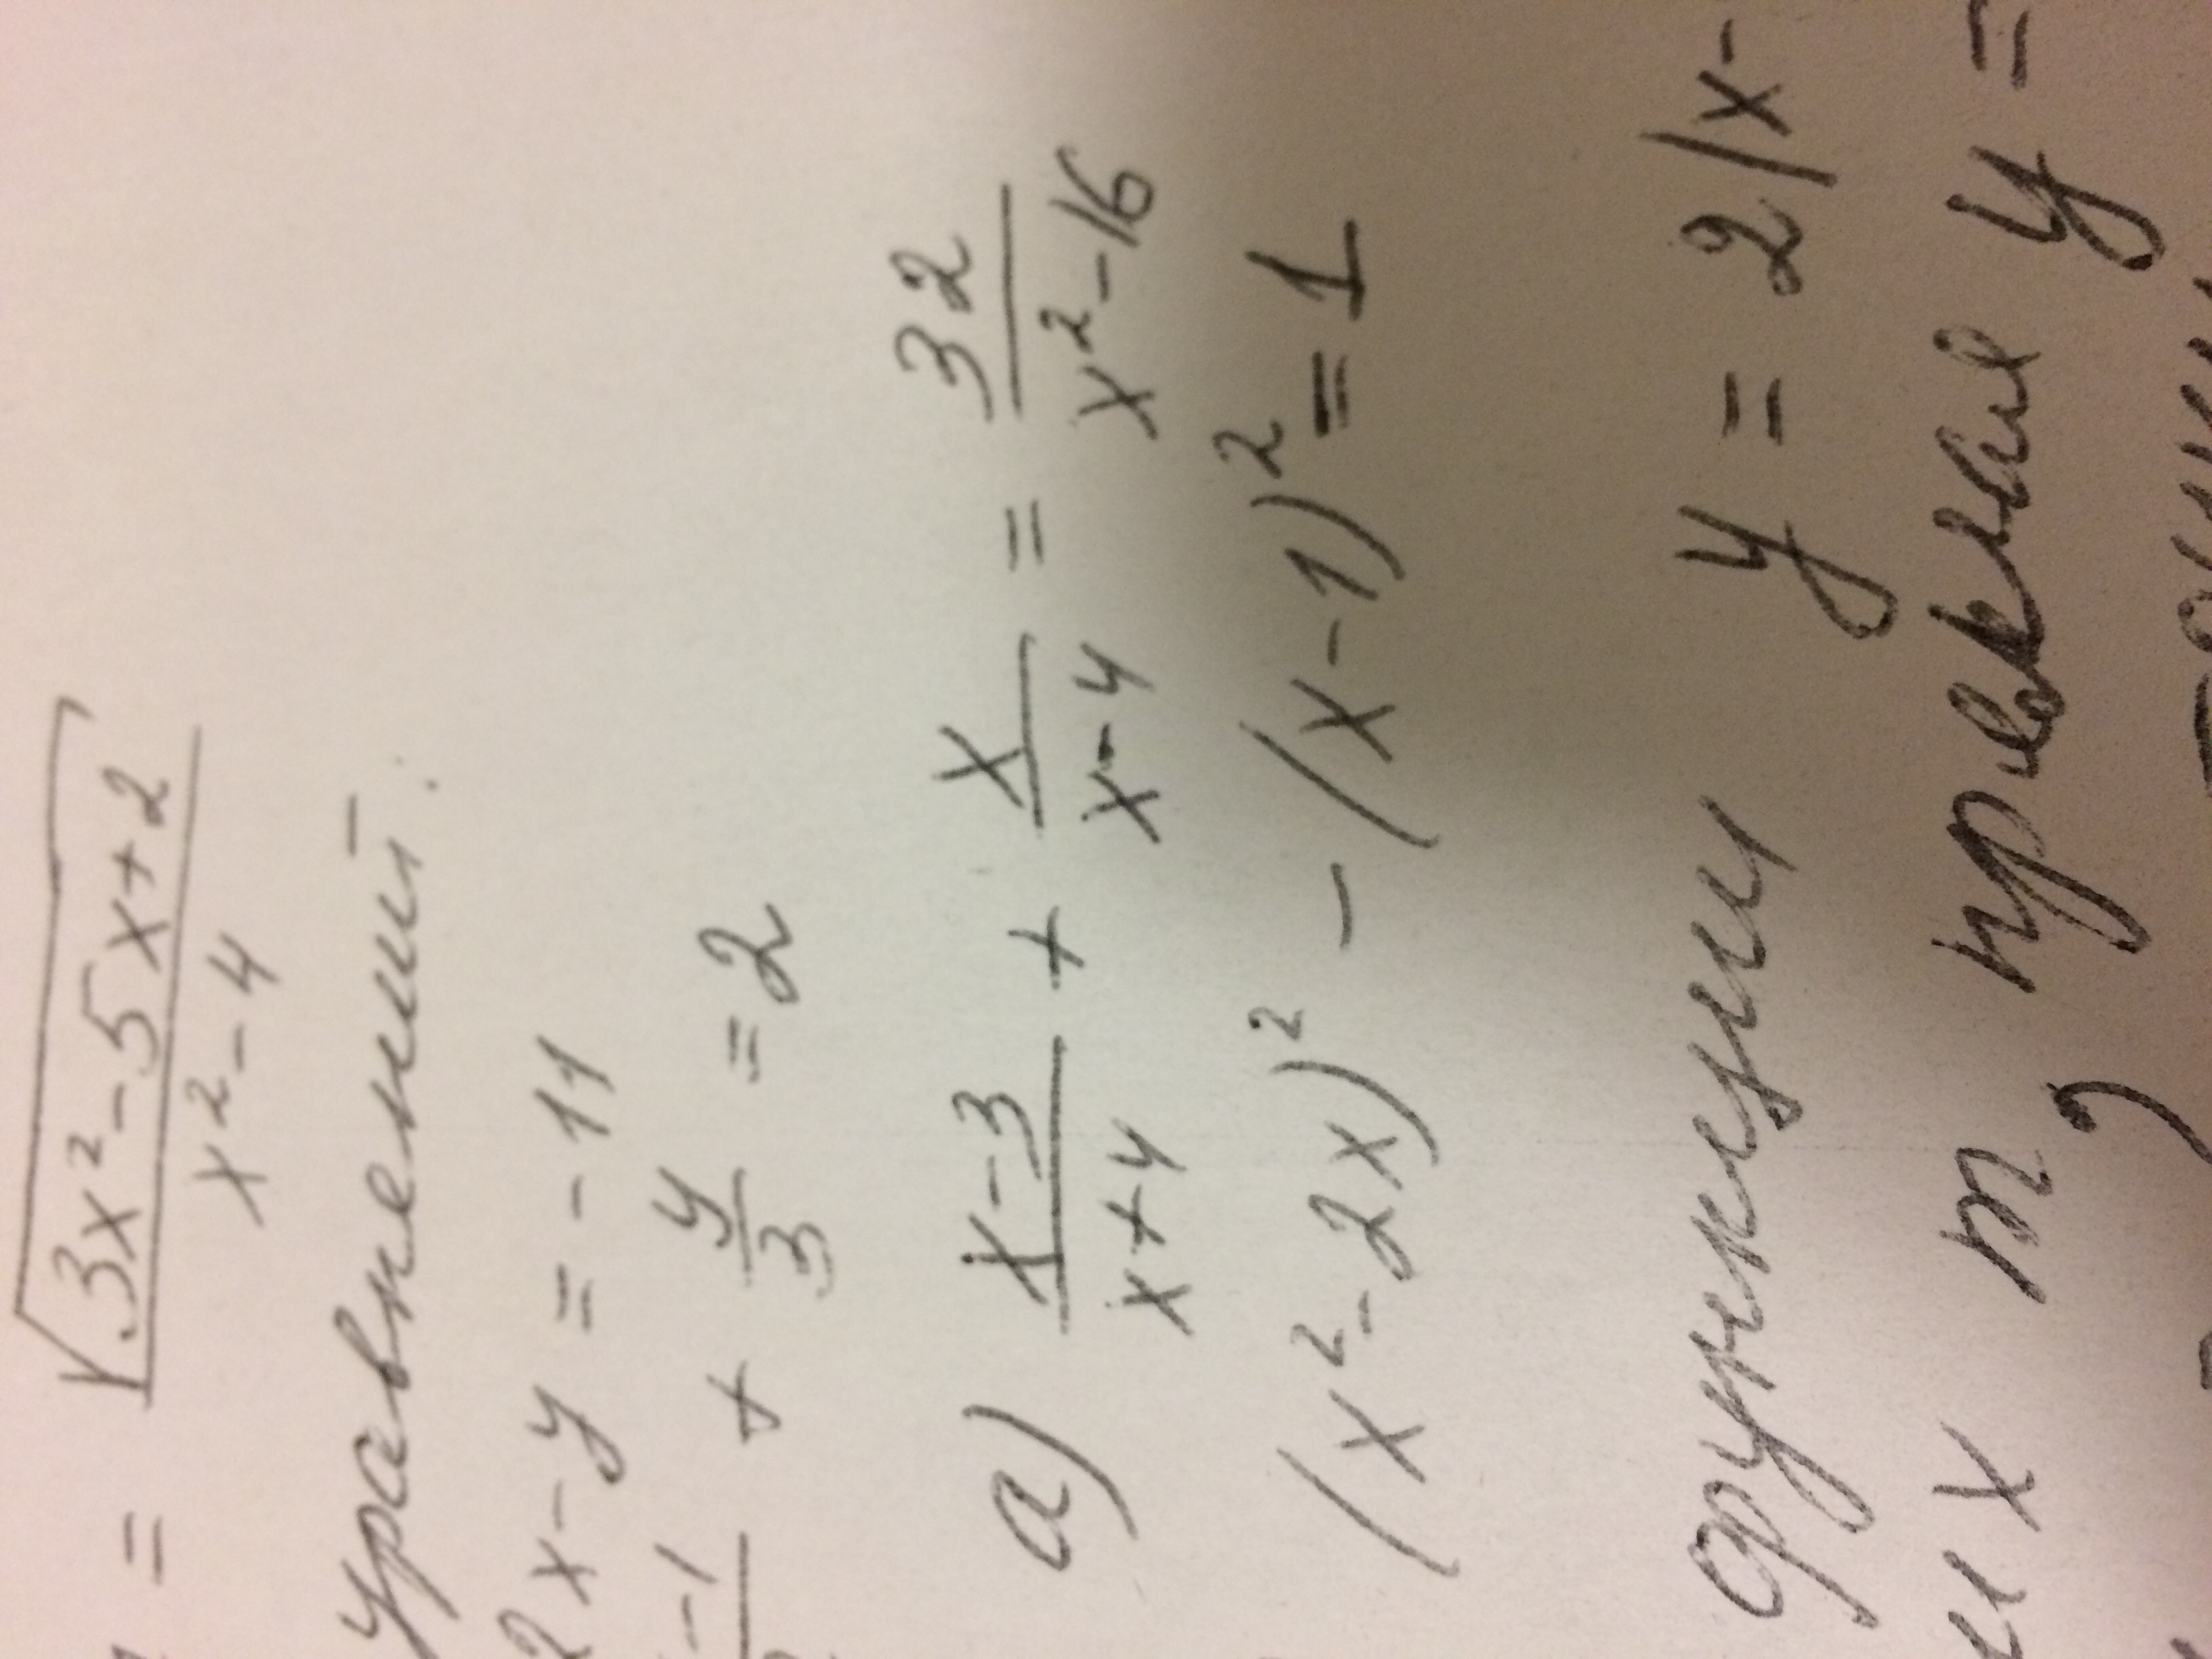 = √(3x² - 5x + 2) / (x² - 4)
уравнений:
2x - y = -11
-1 + y/3 = 2
а) (x - 3)/(x + 4) + x/(x - 4) = 32/(x² - 16)
(x² - 2x)² - (x - 1)² = 1
функции y = 2|x -
их m, прямая y =